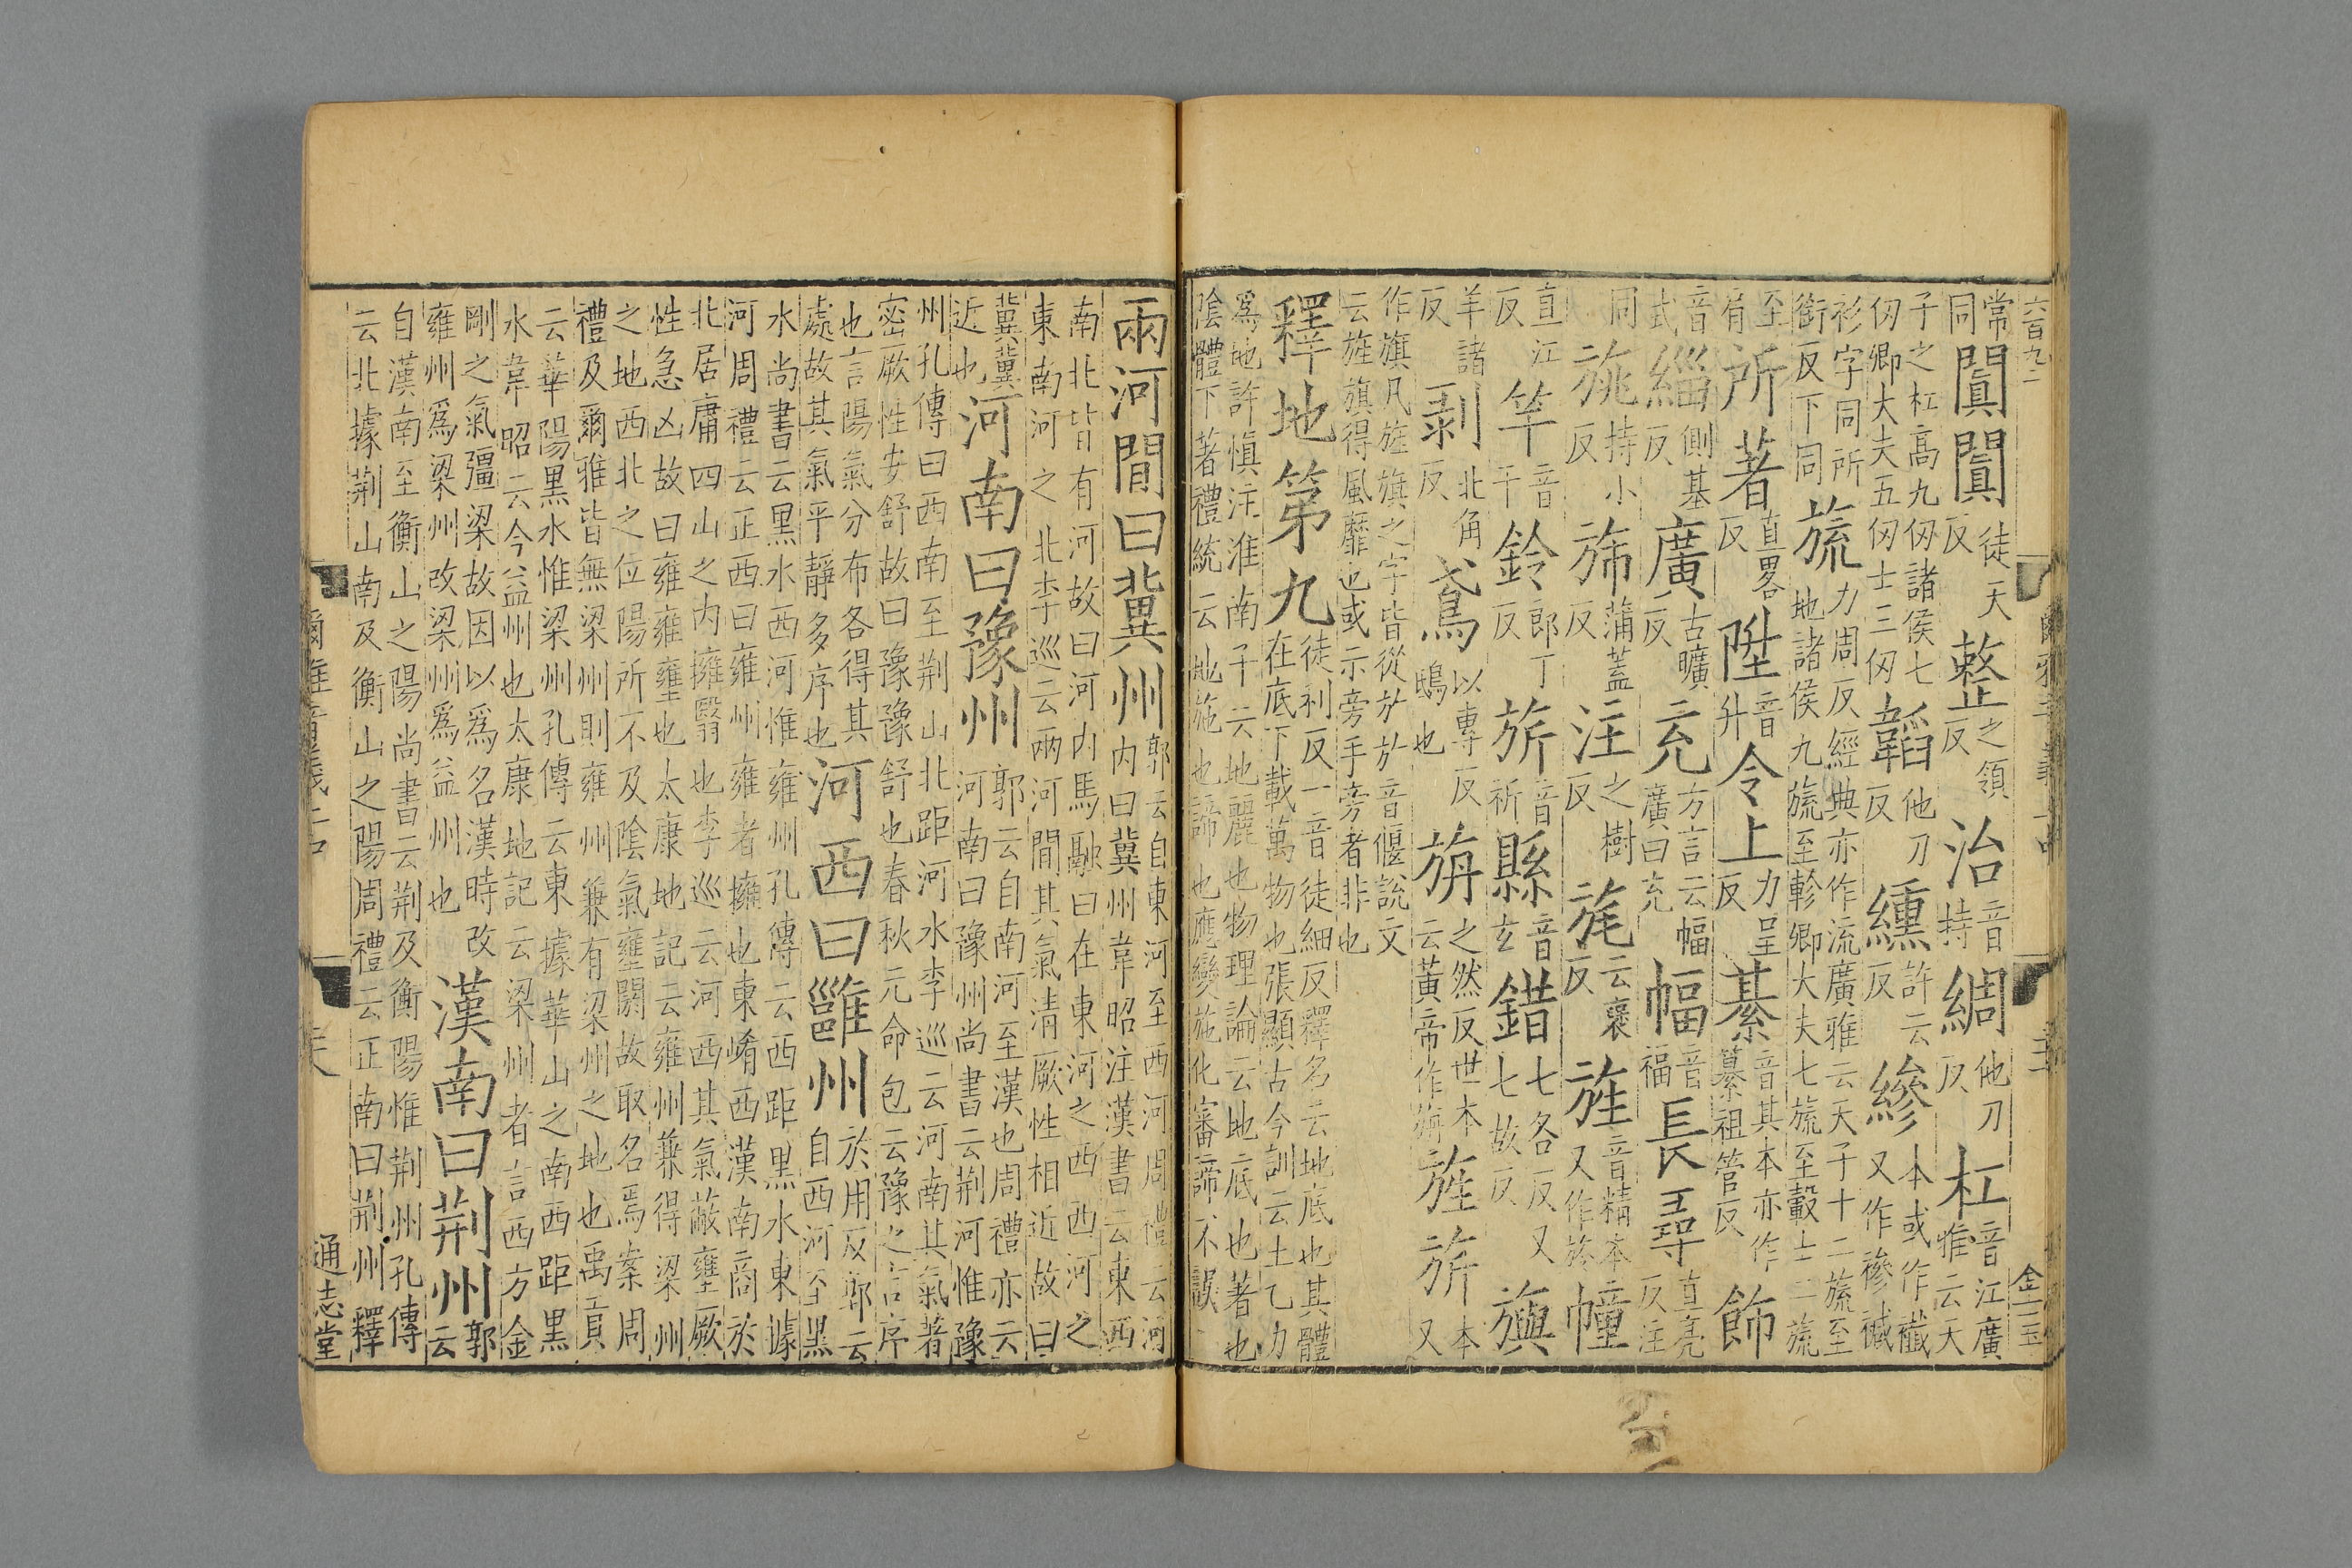 六百九二
常同闐闐徒天反整之領反治音持綢他刀反杠音江廣雅云天
子之杠高九仞諸侯七仞卿大夫五仞士三仞韜他刀反纁許云反縿本或作襳又作襂襳
衫字同所銜反下同旒力周反經典亦作流廣雅云天子十二旒至地諸侯九旒至軫卿大夫七旒至轂士三旒
至肩所著直畧反陞音升令上力呈反綦音其本亦作纂祖管反飾
音式緇側基反廣古曠反充方言云幅廣曰充幅音福長𡬶直亮反注
同旐持小反斾蒲蓋反注之樹反旄云襃反旌音精本又作旍幢
直江反竿音干鈴郎丁反旂音祈縣音玄錯七各反又七故反旟
羊諸反剥北角反鳶以專反鴟也旃之然反世本云黃帝作旃旌旂本又
作旗凡旌旗之字皆從㫃㫃音偃說文云旌旗得風靡也或示旁手旁者非也
釋地第九徒利反一音徒細反釋名云地底也其體在底下載萬物也張顯古今訓云土乙力
爲地許慎注淮南子云地麗也物理論云地底也著也陰體下著禮統云地施也諦也應變施化審諦不誤
金三玉
兩河閒曰冀州郭云自東河至西河周禮云河内曰冀州韋昭注漢書云東西
南北皆有河故曰河内馬融曰在東河之西西河之東南河之北李巡云兩河閒其氣清厥性相近故曰
冀冀近也河南曰豫州郭云自南河至漢也周禮亦云河南曰豫州尚書云荆河惟豫
州孔傳曰西南至荆山北距河水李巡云河南其氣著密厥性安舒故曰豫豫舒也春秋元命包云豫之言序
也言陽氣分布各得其處故其氣平靜多序也河西曰雝州於用反郭云自西河至黑
水尚書云黑水西河惟雍州孔傳云西距黑水東據河周禮云正西曰雍州雍者擁也東崤西漢南商於
北居庸四山之内擁翳也李巡云河西其氣蔽壅厥性急凶故曰雍雍壅也太康地記云雍州兼得梁州
之地西北之位陽所不及陰氣壅閼故取名焉案周禮及爾雅皆無梁州則雍州兼有梁州之地也禹貢
云華陽黑水惟梁州孔傳云東據華山之南西距黑水韋昭云今益州也太康地記云梁州者言西方金
剛之氣彊梁故因以爲名漢時改雍州爲梁州改梁州爲益州也漢南曰荆州郭云
自漢南至衡山之陽尚書云荆及衡陽惟荆州孔傳云北據荆山南及衡山之陽周禮云正南曰荆州釋
通志堂